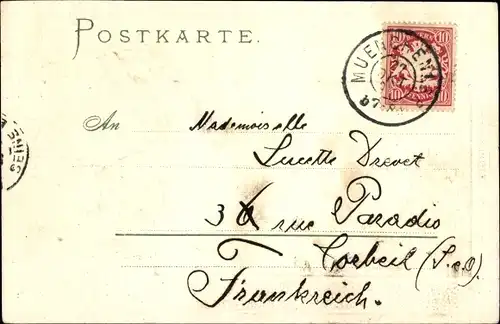 POSTKARTE.
MUENCHEN 1
10 10
10 PFENNIG 10
An Mademoiselle
Lucette Drevet
36 rue Paradis
Corbeil (S.&O.)
Frankreich.